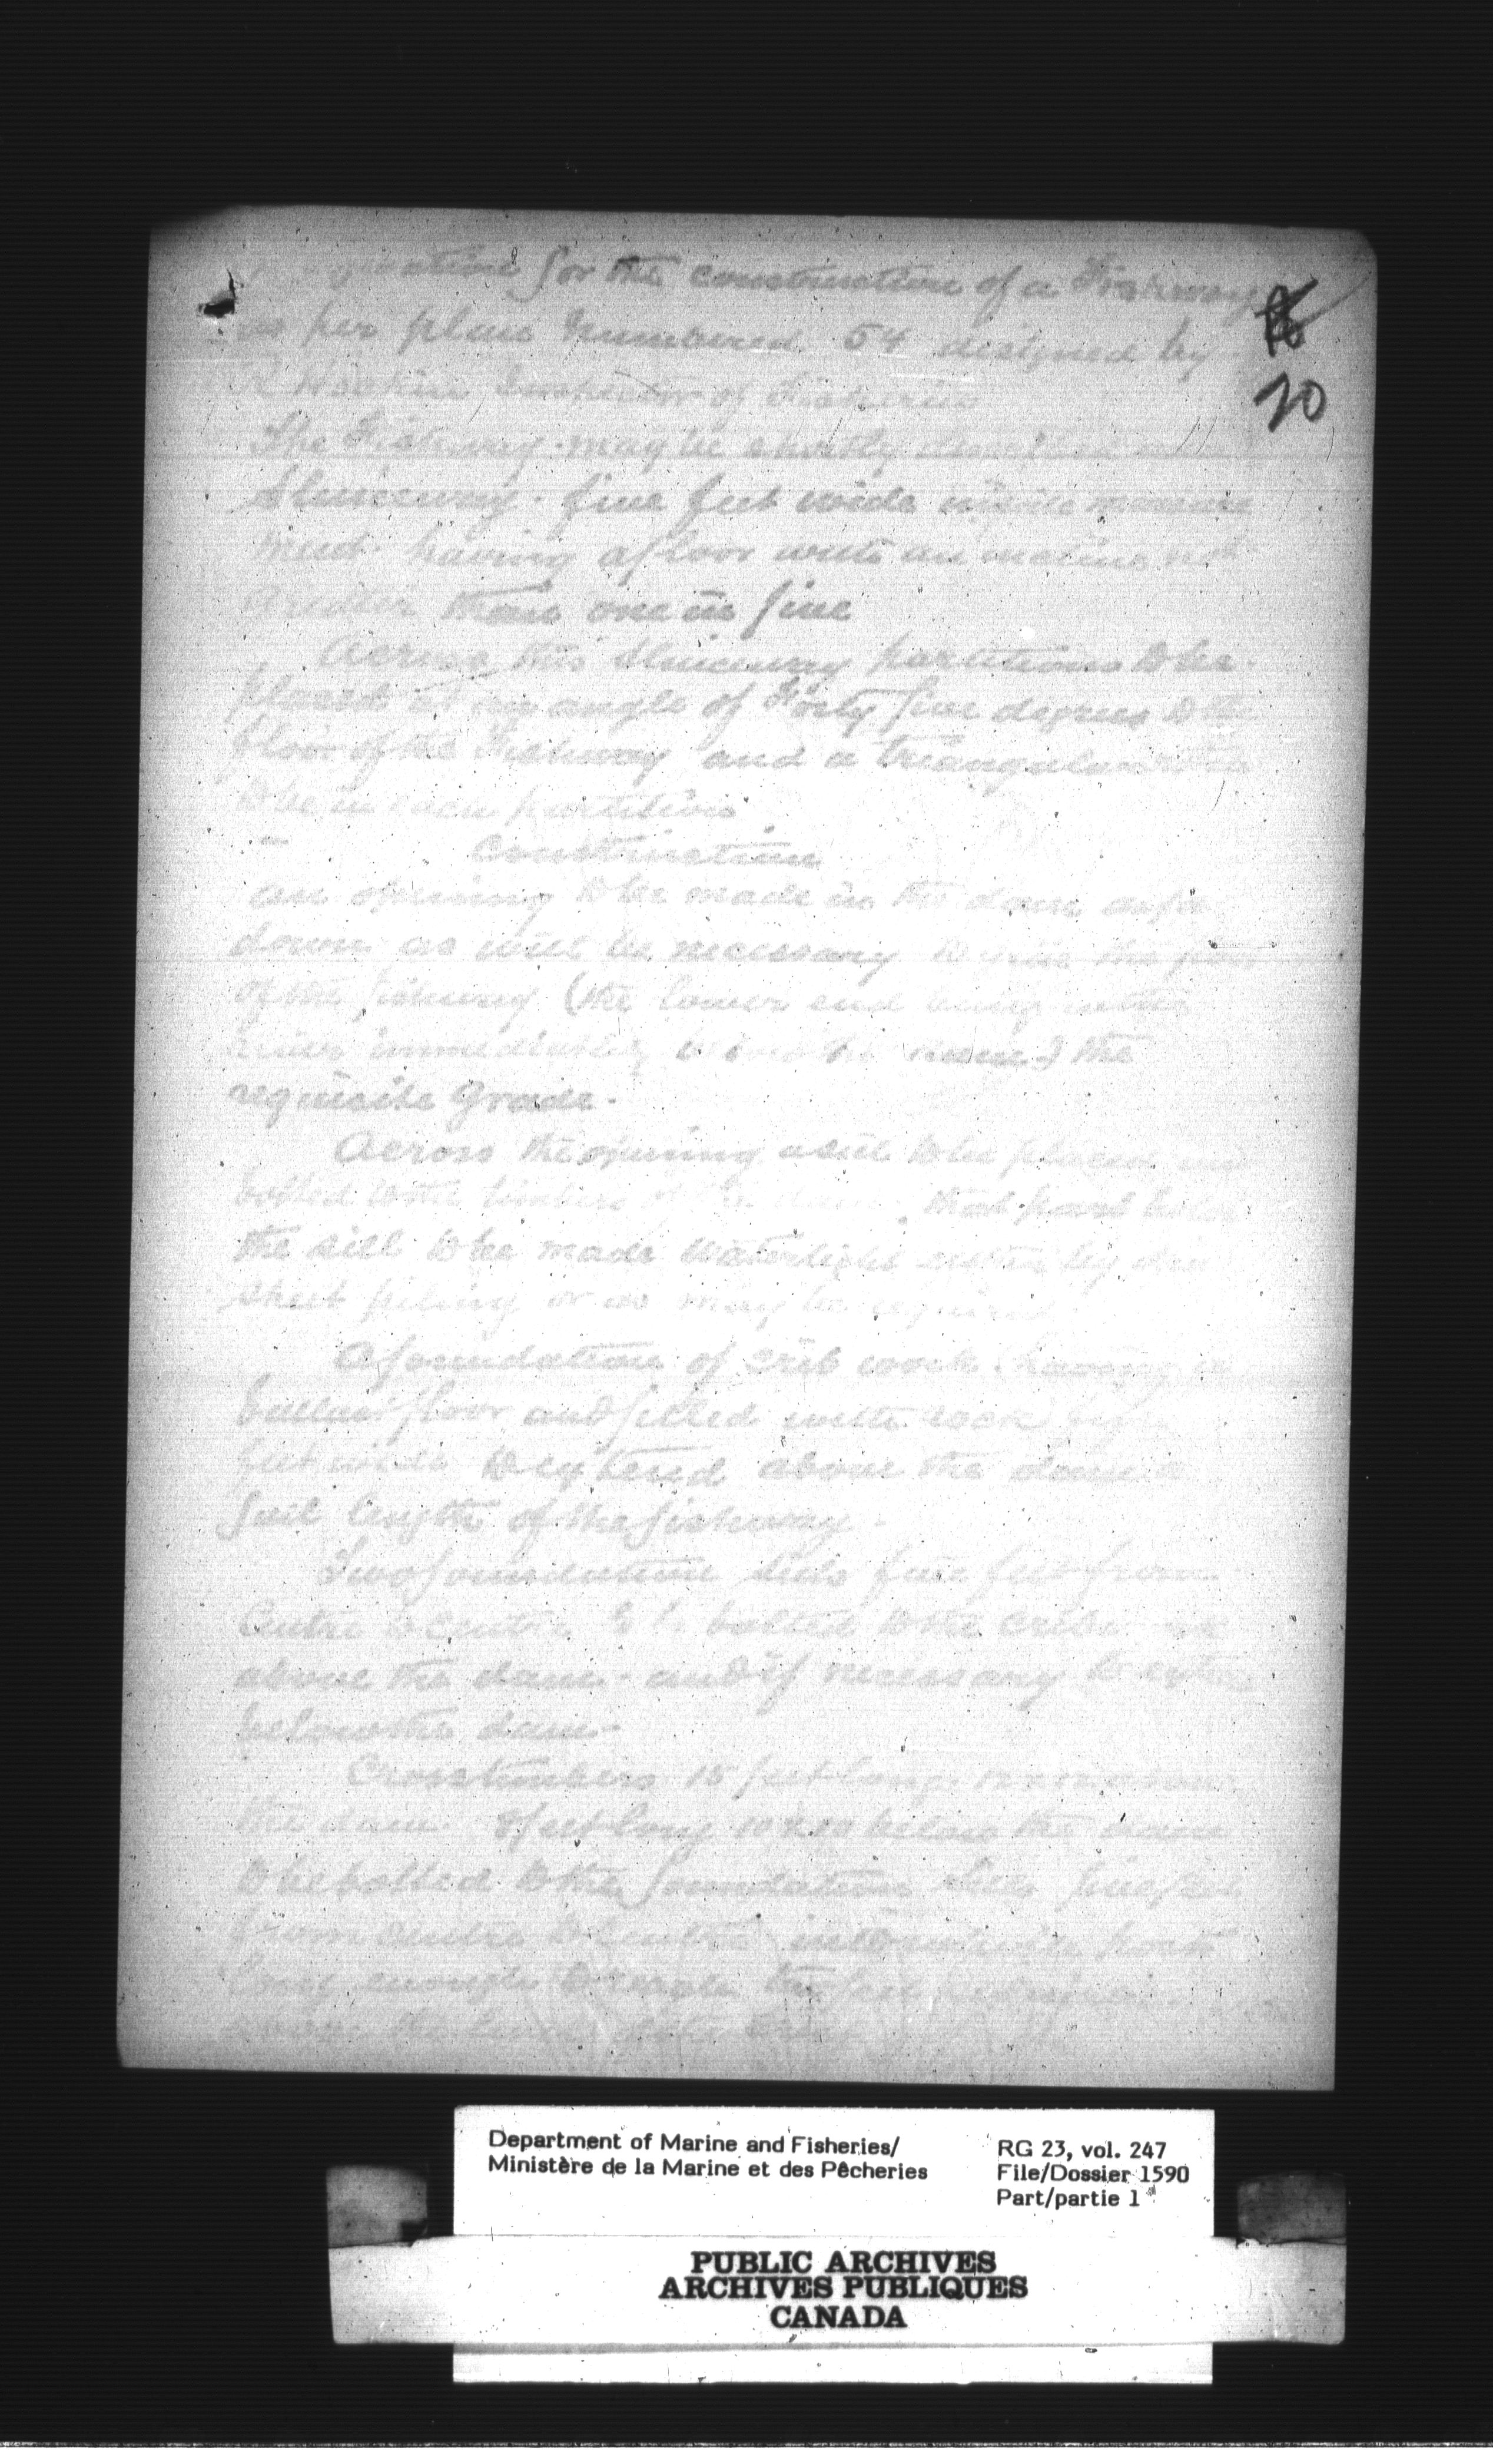 for the construction of a Fishway
as per plan Numbered 54 designed by
R Hockin Inspector of Fisheries
The Fishway may be shortly
Sluiceway five feet wide inside measure
ment having a floor with an incline not
greater than one in five
Across this Sluiceway partitions to be
placed at an angle of Forty five degrees to the
floor of the Fishway and a triangular
to be in each partition
Construction
an opening to be made in the dam as far
down as will be necessary to give the floor
of the fishway (the lower end being in the
river immediately the dam) the
requisite grade.
Across the opening a sill to be placed and
bolted to the timbers of the dam. that part below
the sill to be made Watertight either by
sheet piling or as may be required
A foundation of crib work having a
ballast floor and filled with rock
feet wide to extend above the dam
full length of the fishway.
Two foundation sills five feet from
Centre to Centre to be bolted to the cribs
above the dam and if necessary to extend
below the dam.
Cross timbers 15 feet long 12 x 12 above
the dam feet long 10 x 10 below the dam
to be bolted to the foundation sills five feet
from centre to centre into which posts
long enough to
20
Department of Marine and Fisheries/
Ministère de la Marine et des Pêcheries
RG 23, vol. 247
File/Dossier 1590
Part/partie 1
PUBLIC ARCHIVES
ARCHIVES PUBLIQUES
CANADA